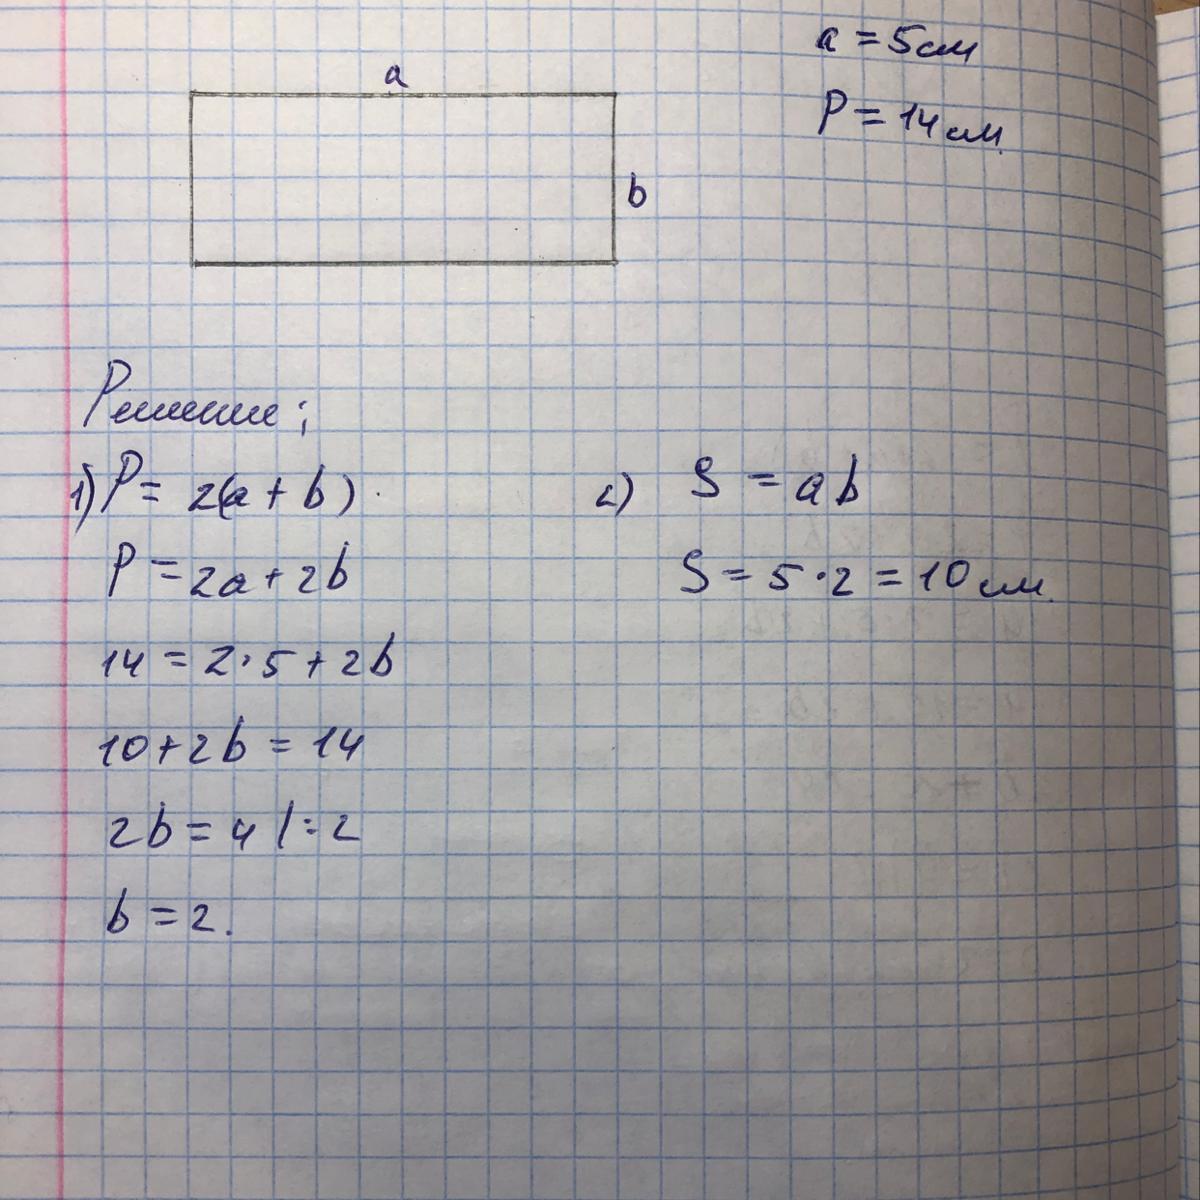 a = 5см
P = 14см.
a
b
Решение:
1) P = 2(a + b).
P = 2a + 2b
14 = 2·5 + 2b
10 + 2b = 14
2b = 4 /:2
b = 2.
2) S = ab
S = 5·2 = 10 см.